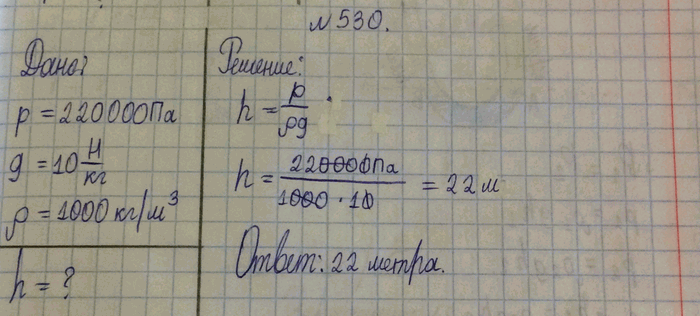 №530.
Дано:
p = 220000Па
g = 10 Н/кг
ρ = 1000 кг/м³
h = ?
Решение:
h = p/ρg
h = 220000Па/1000 · 10 = 22 м
Ответ: 22 метра.